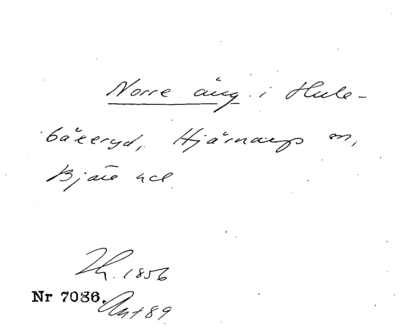 Norre äng i Hule-
bäckeryd, Hjärnarps sn,
Bjäre hd.
Th. 1856
Nr 7036. Akt 89